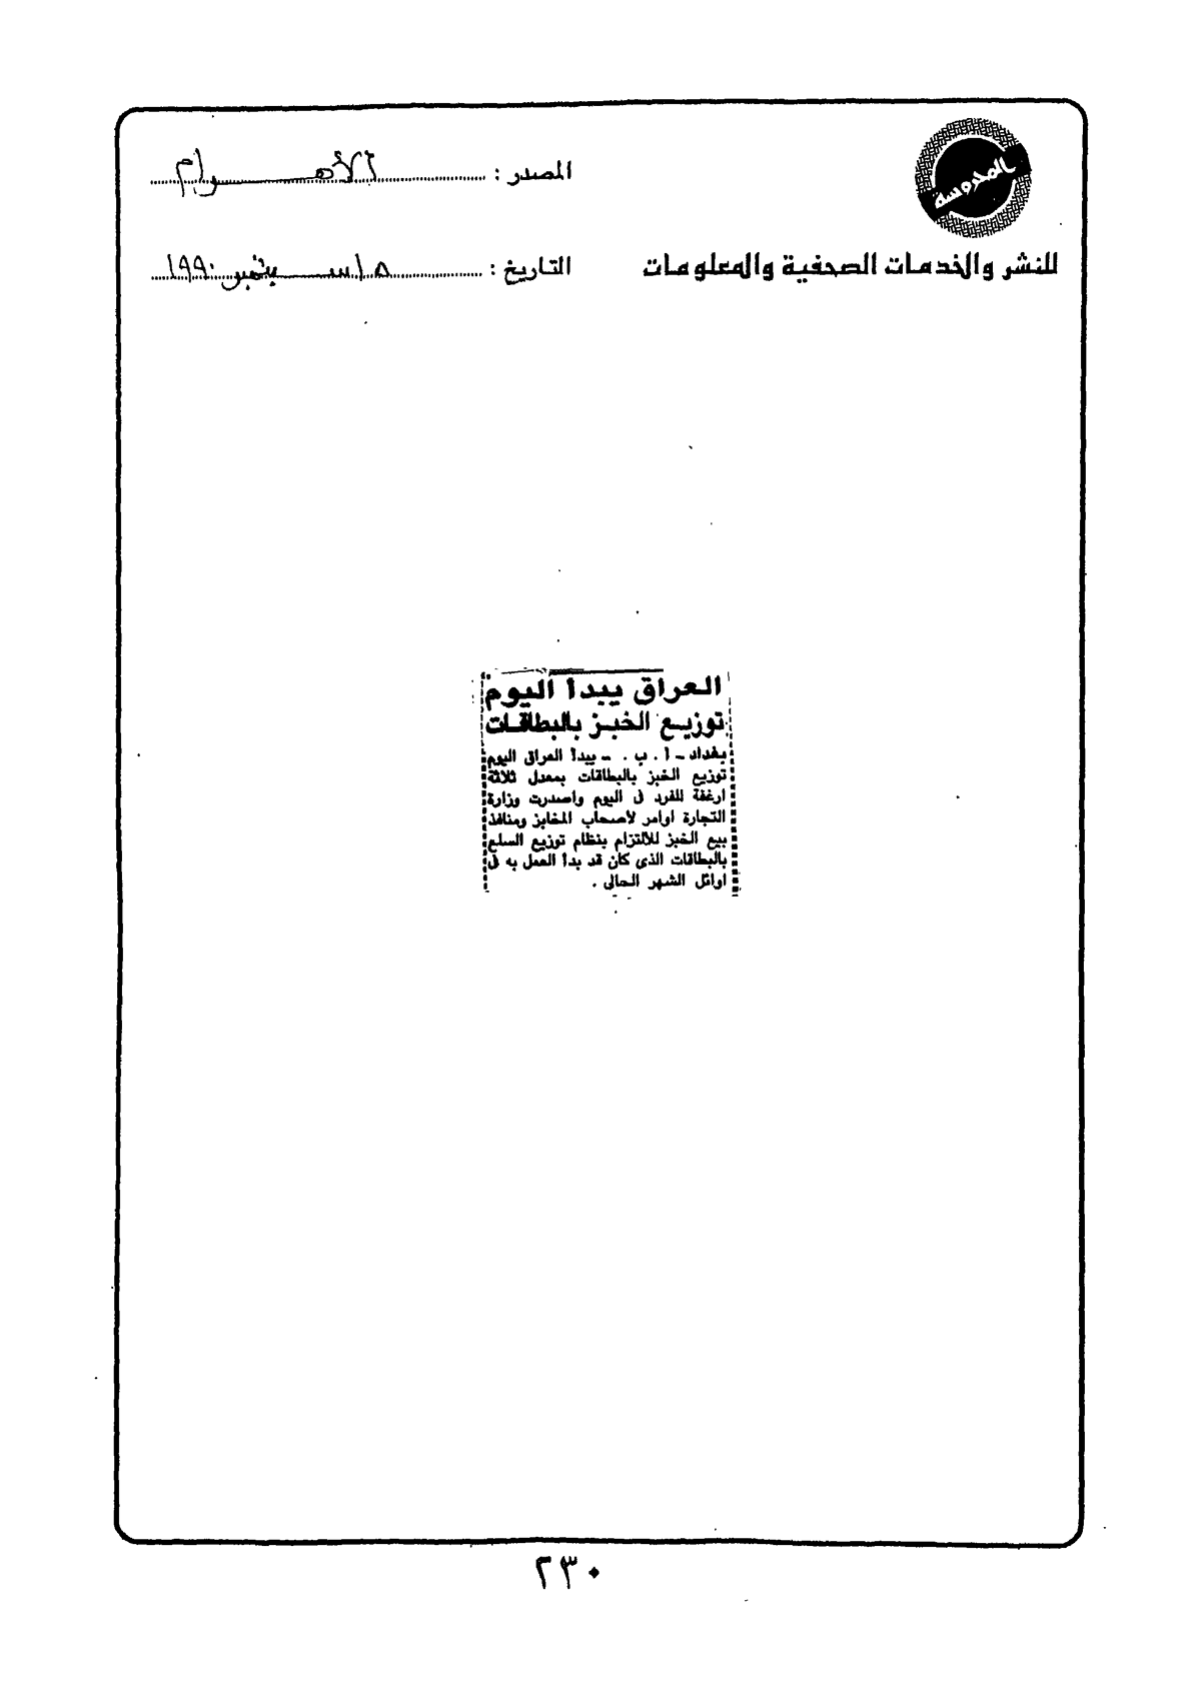 المحروسة
للنشر والخدمات الصحفية والمعلومات
المصدر : الأهـــرام
التاريخ : ١٨ سبتمبر ١٩٩٠
العراق يبدأ اليوم
توزيع الخبز بالبطاقات
بغداد ـ ا . ب . ـ يبدأ العراق اليوم
توزيع الخبز بالبطاقات بمعدل ثلاثة
ارغفة للفرد فى اليوم واصدرت وزارة
التجارة اوامر لأصحاب المخابز ومنافذ
بيع الخبز للالتزام بنظام توزيع السلع
بالبطاقات الذى كان قد بدأ العمل به فى
اوائل الشهر الحالى .
٢٣٠